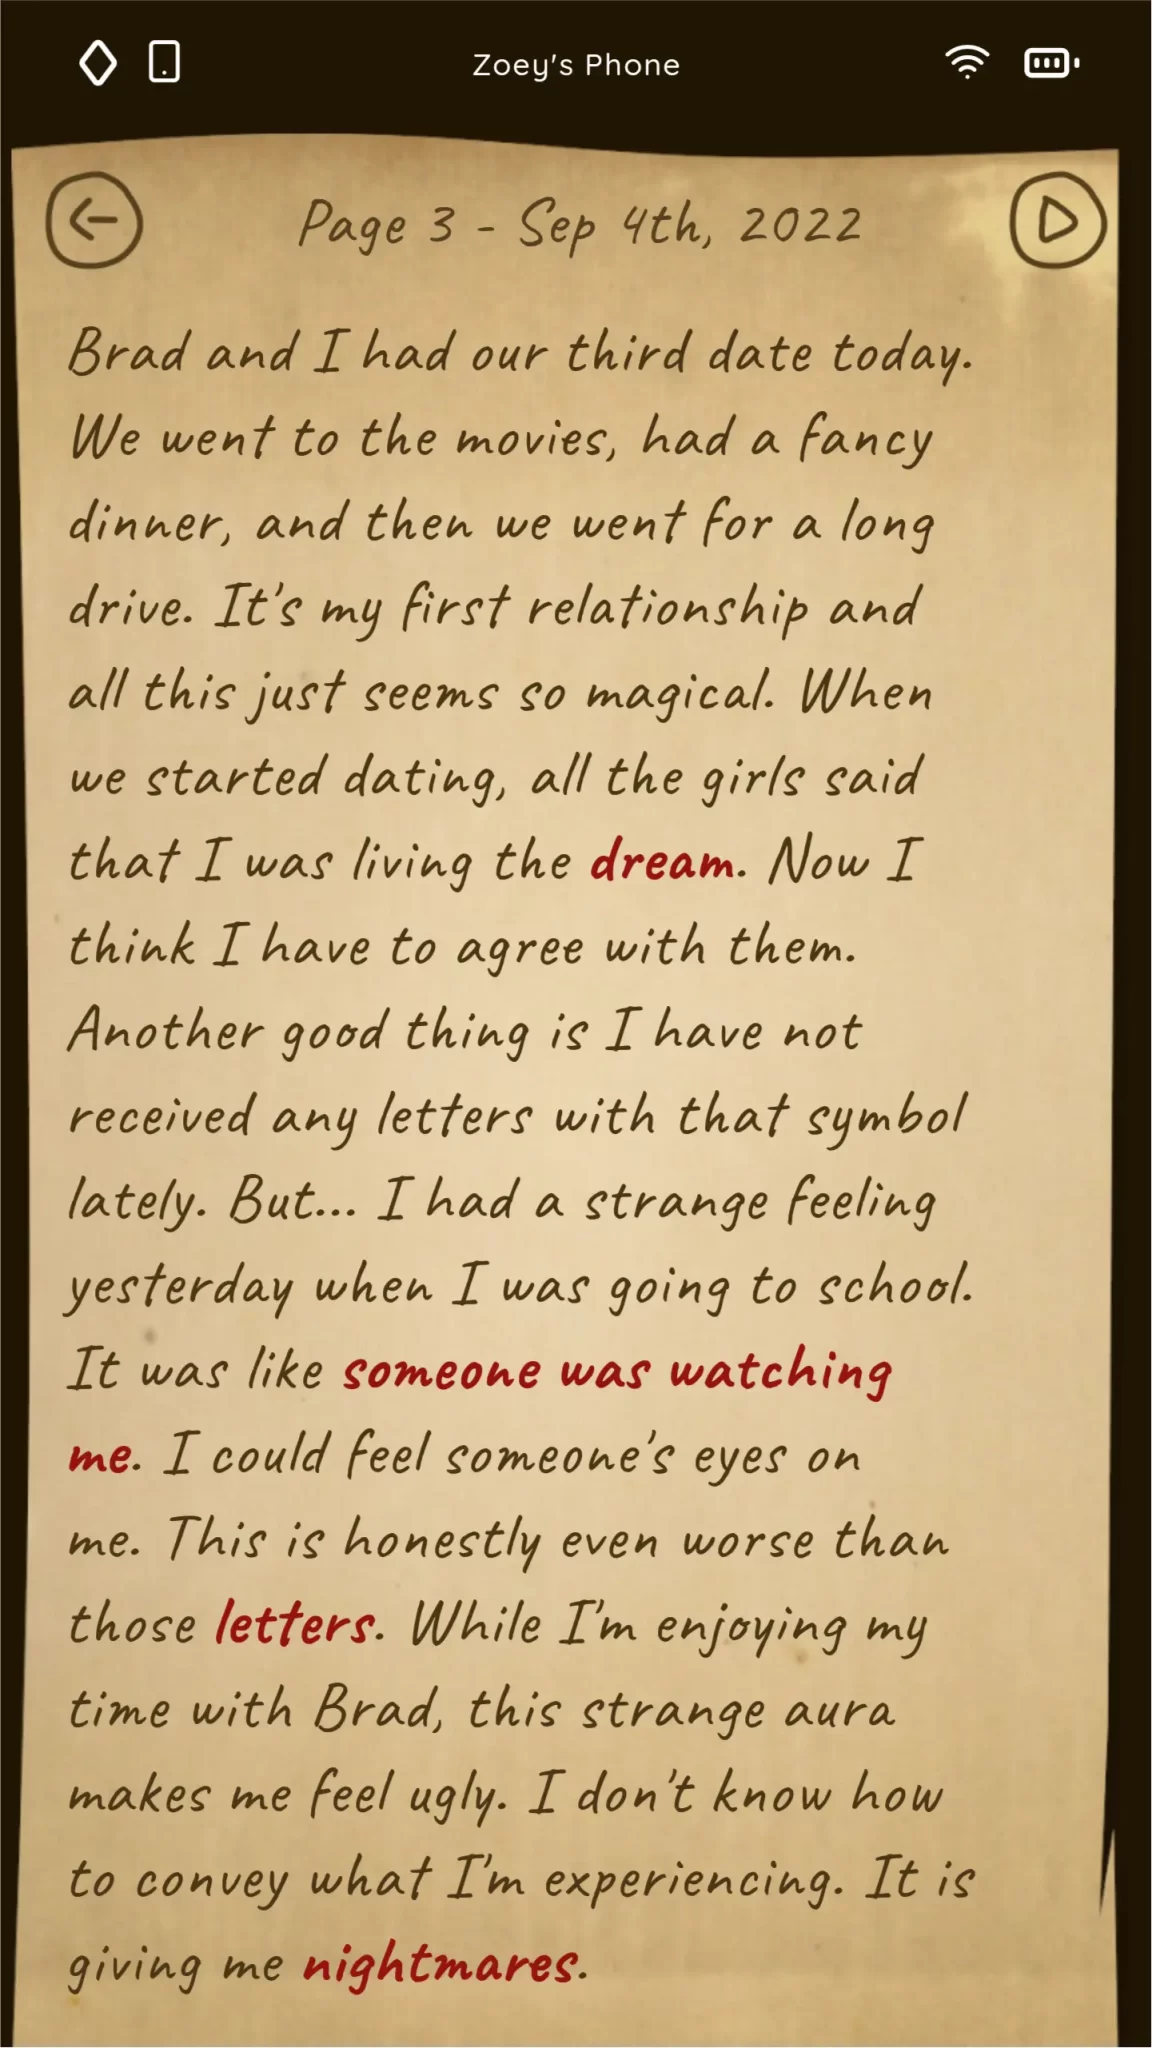 Zoey's Phone
Page 3 - Sep 4th, 2022
Brad and I had our third date today.
We went to the movies, had a fancy
dinner, and then we went for a long
drive. It's my first relationship and
all this just seems so magical. When
we started dating, all the girls said
that I was living the dream. Now I
think I have to agree with them.
Another good thing is I have not
received any letters with that symbol
lately. But... I had a strange feeling
yesterday when I was going to school.
It was like someone was watching
me. I could feel someone's eyes on
me. This is honestly even worse than
those letters. While I'm enjoying my
time with Brad, this strange aura
makes me feel ugly. I don't know how
to convey what I'm experiencing. It is
giving me nightmares.